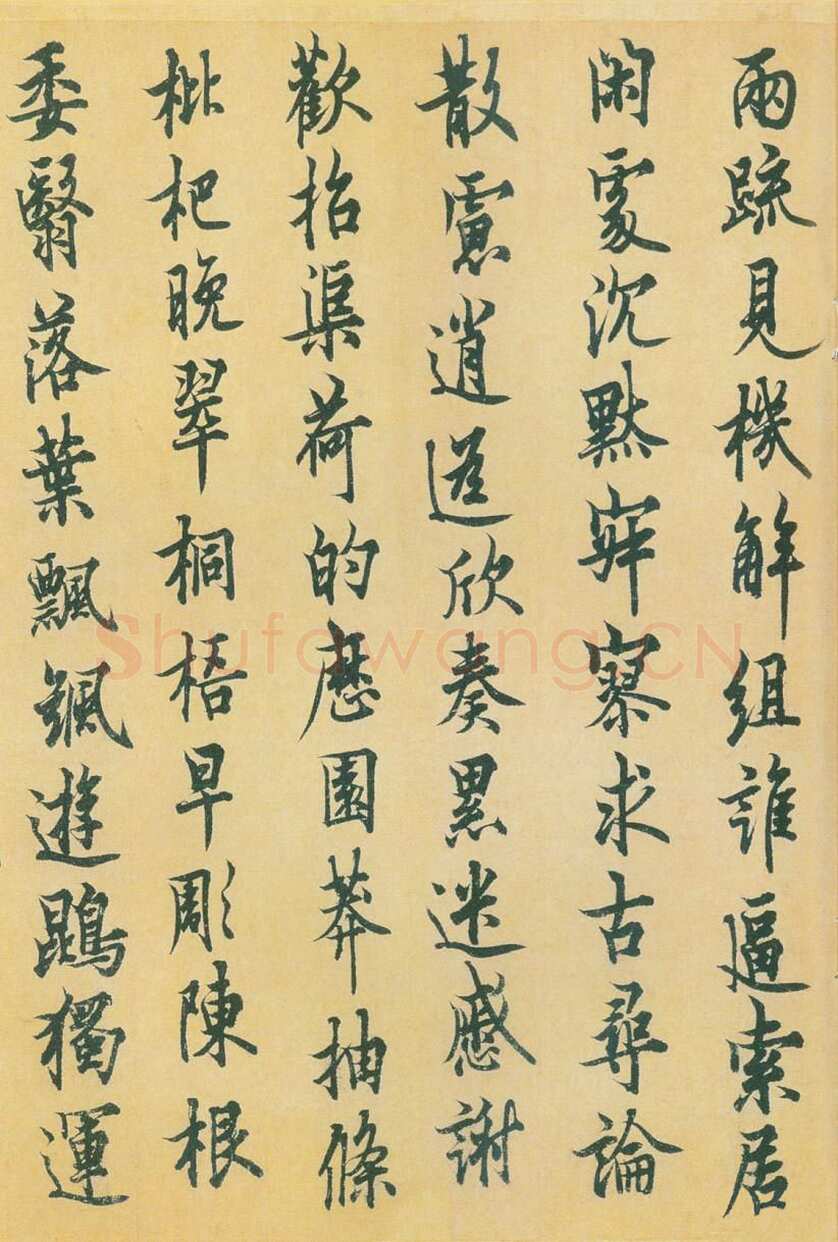 兩疏見機解組誰逼索居
閑處沉默寂寥求古尋論
散慮逍遥欣奏累迷慼謝
歡招渠荷的歷園莽抽條
枇杷晚翠桐梧早彫陳根
委翳落葉飄颻遊鵾獨運
Shufawang.CN